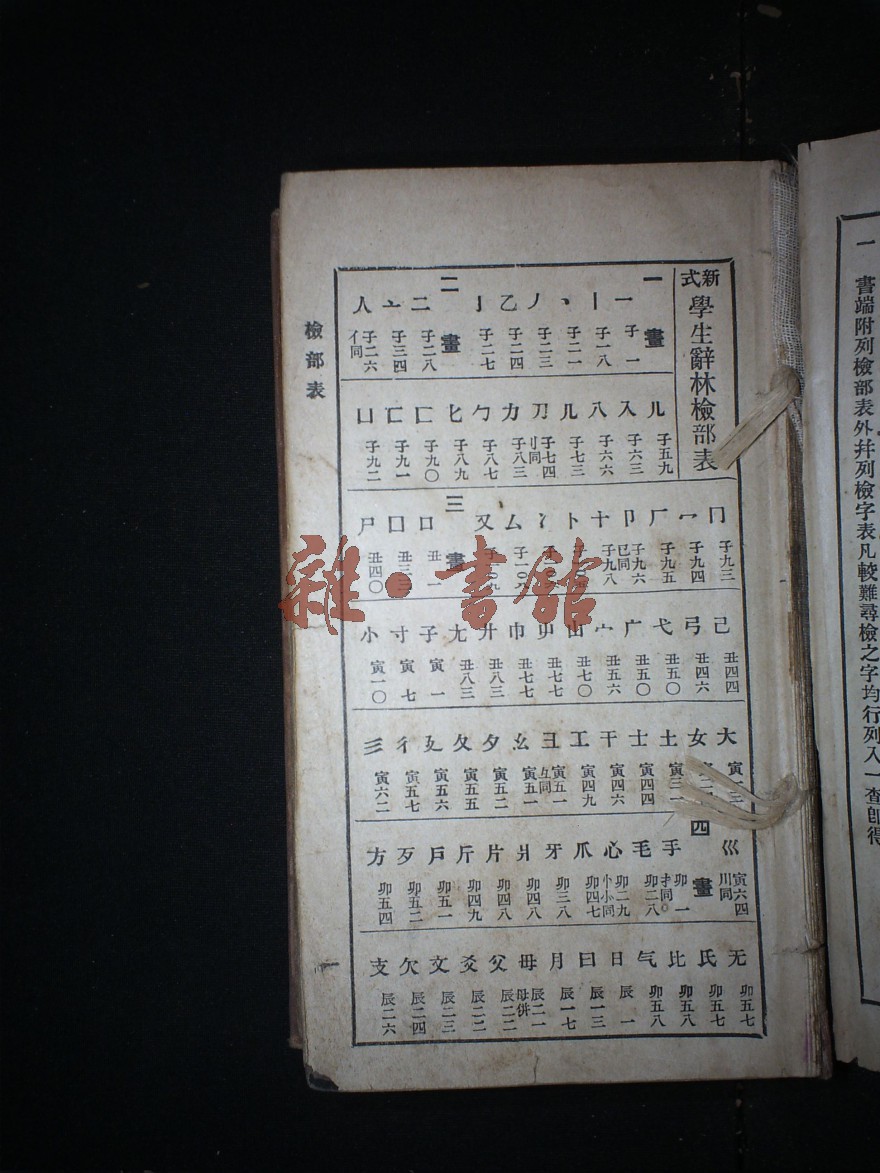 一 書端附列檢部表外幷列檢字表凡較難尋檢之字均行列入一查卽得
新式學生辭林檢部表
一畫
一 子一
丨 子一八
丶 子二一
丿 子二三
乙 子二四
亅 子二七
二畫
二 子二八
亠 子三四
人 子二六 亻同
儿 子五九
入 子六三
八 子六六
几 子七三
刀 子七四 刂同
力 子八三
勹 子八七
匕 子八九
匚 子九〇
匸 子九一
凵 子九二
冂 子九三
冖 子九四
厂 子九五
卩 子九六 㔾同
十 子九八
卜
冫
厶 子一〇八
又
三畫
口 丑一
囗 丑三三
尸 丑四〇
己 丑四四
弓 丑四六
弋 丑五〇
广 丑五〇
宀 丑五六
山 丑七〇
屮 丑七七
巾 丑七七
廾 丑八三
尢 丑八三
子 寅一
寸 寅七
小 寅一〇
大 寅一三
女
土 寅三一
士 寅四四
干 寅四六
工 寅四九
彐 寅五一 彑同
幺 寅五一
夕 寅五二
夂 寅五五
廴 寅五六
彳 寅五七
彡 寅六二
巛 寅六四 川同
四畫
手 卯一 扌同
毛 卯二八
心 卯二九 忄㣺同
爪 卯四七
牙 卯三八
爿 卯四八
片 卯四八
斤 卯四九
戶 卯五一
歹 卯五二
方 卯五四
无 卯五七
氏 卯五七
比 卯五八
气 卯五八
日 辰一
曰 辰一三
月 辰一七
毋 辰二一 母併
父 辰二二
爻 辰二二
文 辰二三
欠 辰二四
支 辰二六
檢部表
一
雜·書館